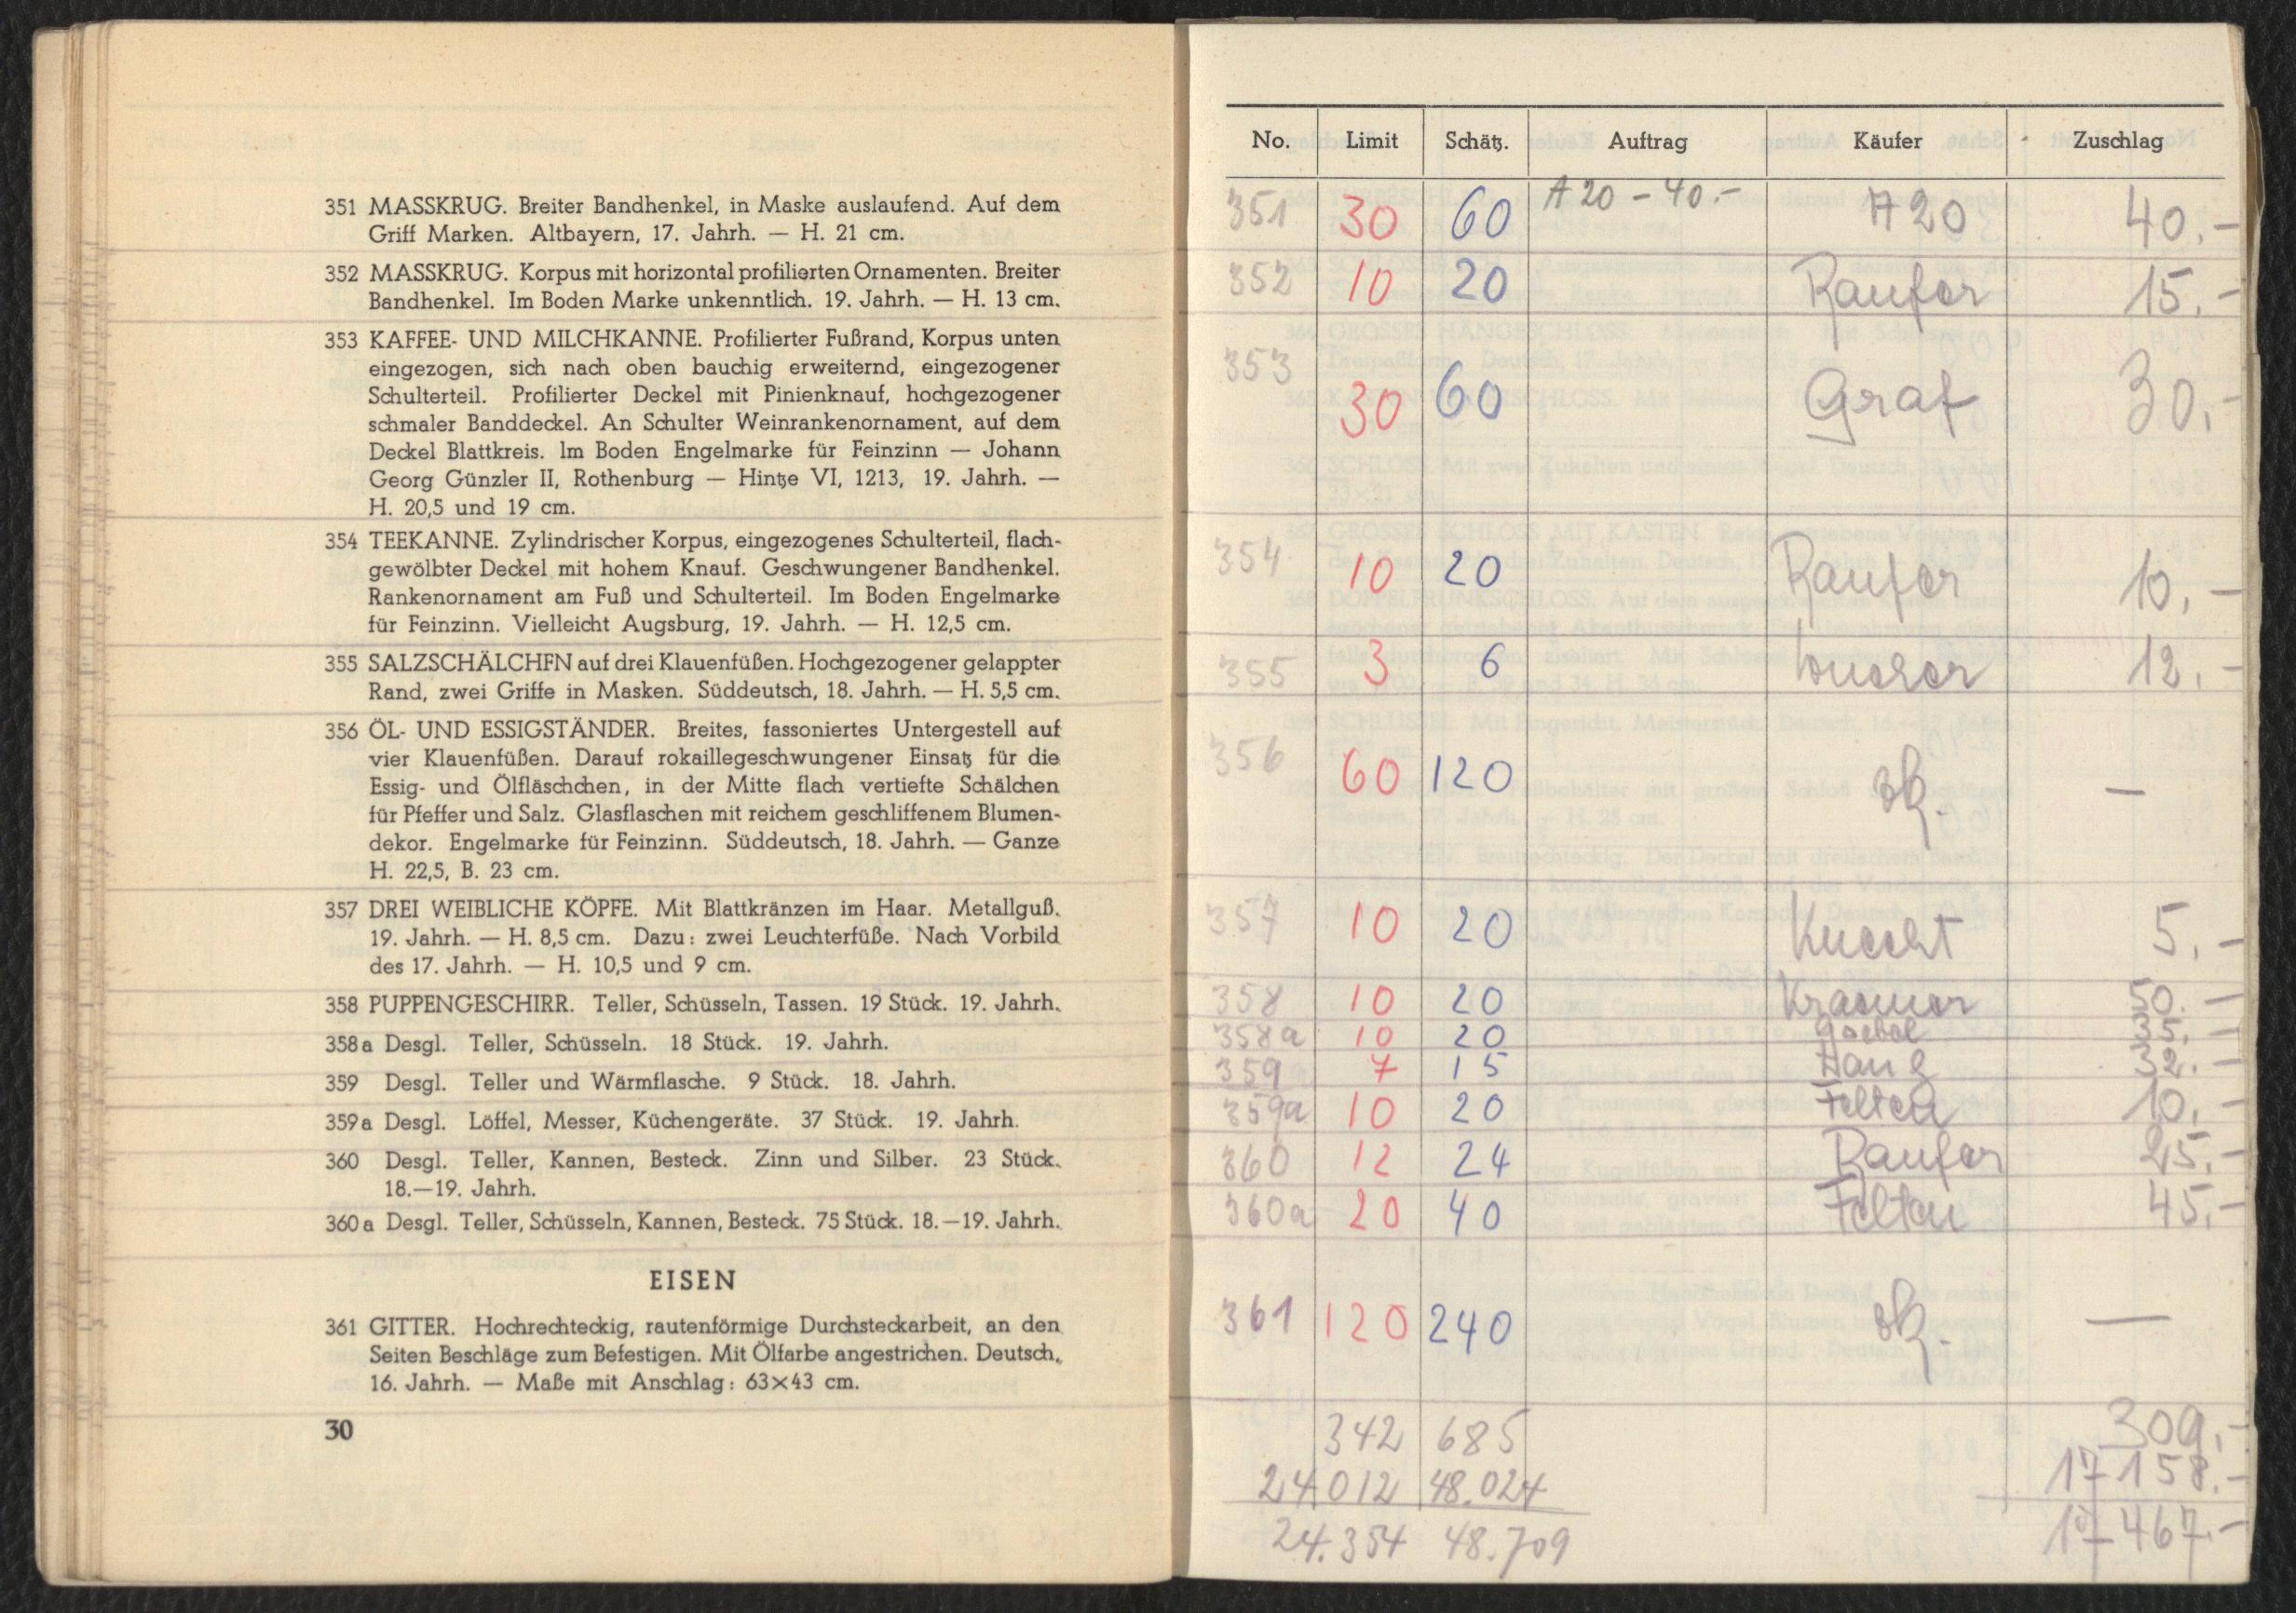 351 MASSKRUG. Breiter Bandhenkel, in Maske auslaufend. Auf dem
Griff Marken. Altbayern, 17. Jahrh. — H. 21 cm.
352 MASSKRUG. Korpus mit horizontal profilierten Ornamenten. Breiter
Bandhenkel. Im Boden Marke unkenntlich. 19. Jahrh. — H. 13 cm.
353 KAFFEE- UND MILCHKANNE. Profilierter Fußrand, Korpus unten
eingezogen, sich nach oben bauchig erweiternd, eingezogener
Schulterteil. Profilierter Deckel mit Pinienknauf, hochgezogener
schmaler Banddeckel. An Schulter Weinrankenornament, auf dem
Deckel Blattkreis. Im Boden Engelmarke für Feinzinn — Johann
Georg Günzler II, Rothenburg — Hintze VI, 1213, 19. Jahrh. —
H. 20,5 und 19 cm.
354 TEEKANNE. Zylindrischer Korpus, eingezogenes Schulterteil, flach-
gewölbter Deckel mit hohem Knauf. Geschwungener Bandhenkel.
Rankenornament am Fuß und Schulterteil. Im Boden Engelmarke
für Feinzinn. Vielleicht Augsburg, 19. Jahrh. — H. 12,5 cm.
355 SALZSCHÄLCHFN auf drei Klauenfüßen. Hochgezogener gelappter
Rand, zwei Griffe in Masken. Süddeutsch, 18. Jahrh. — H. 5,5 cm.
356 ÖL- UND ESSIGSTÄNDER. Breites, fassoniertes Untergestell auf
vier Klauenfüßen. Darauf rokaillegeschwungener Einsatz für die
Essig- und Ölfläschchen, in der Mitte flach vertiefte Schälchen
für Pfeffer und Salz. Glasflaschen mit reichem geschliffenem Blumen-
dekor. Engelmarke für Feinzinn. Süddeutsch, 18. Jahrh. — Ganze
H. 22,5, B. 23 cm.
357 DREI WEIBLICHE KÖPFE. Mit Blattkränzen im Haar. Metallguß.
19. Jahrh. — H. 8,5 cm. Dazu: zwei Leuchterfüße. Nach Vorbild
des 17. Jahrh. — H. 10,5 und 9 cm.
358 PUPPENGESCHIRR. Teller, Schüsseln, Tassen. 19 Stück. 19. Jahrh.
358a Desgl. Teller, Schüsseln. 18 Stück. 19. Jahrh.
359 Desgl. Teller und Wärmflasche. 9 Stück. 18. Jahrh.
359a Desgl. Löffel, Messer, Küchengeräte. 37 Stück. 19. Jahrh.
360 Desgl. Teller, Kannen, Besteck. Zinn und Silber. 23 Stück.
18.—19. Jahrh.
360a Desgl. Teller, Schüsseln, Kannen, Besteck. 75 Stück. 18.—19. Jahrh.
EISEN
361 GITTER. Hochrechteckig, rautenförmige Durchsteckarbeit, an den
Seiten Beschläge zum Befestigen. Mit Ölfarbe angestrichen. Deutsch,
16. Jahrh. — Maße mit Anschlag: 63×43 cm.
30
No. Limit Schätz. Auftrag Käufer Zuschlag
351 30 60 A 20 – 40.- A 20 40.-
352 10 20 15.-
353 30 60 Graf 30.-
354 10 20 10.-
355 3 6 12.-
356 60 120 —
357 10 20 Knecht 5.-
358 10 20 50.-
358a 10 20 Goebel 35.-
359 7 15 32.-
359a 10 20 Felten 10.-
360 12 24 25.-
360a 20 40 Felten 45.-
361 120 240 —
342 685 309.-
24 012 48.024 17 158.-
24.354 48.709 17 467.-